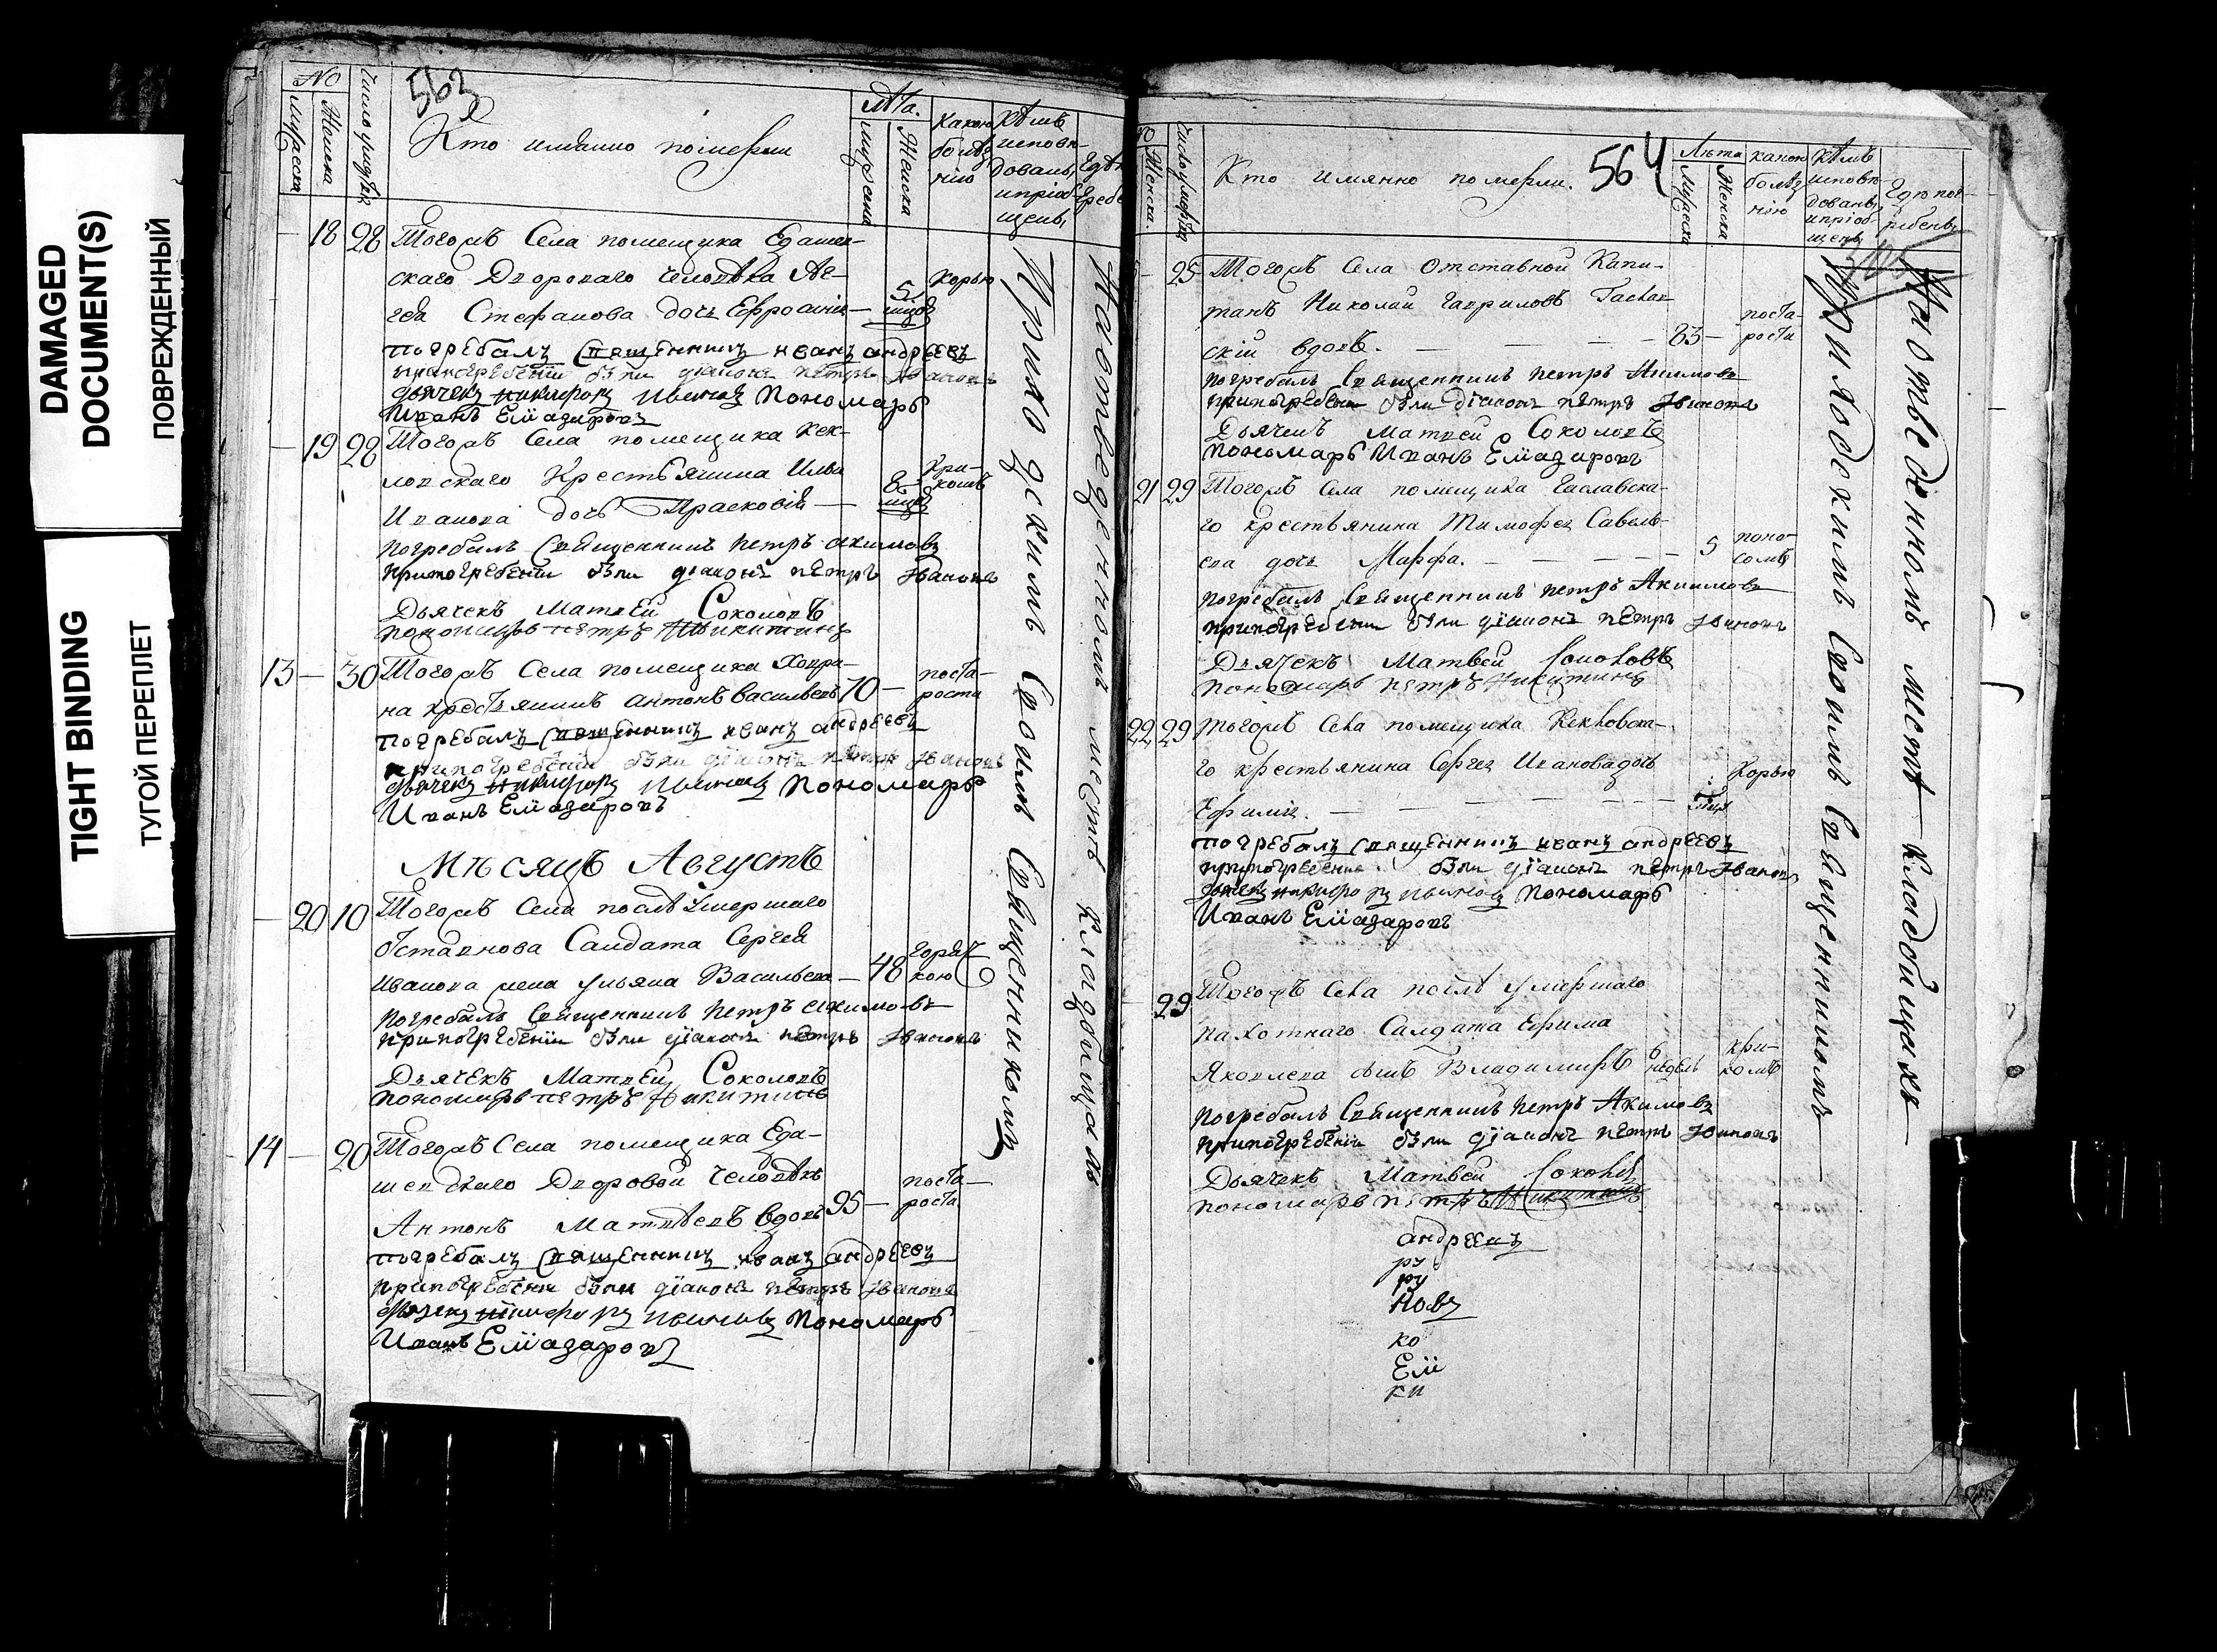 DAMAGED
DOCUMENT(S)
ПОВРЕЖДЕННЫЙ
TIGHT BINDING
ТУГОЙ ПЕРЕПЛЕТ
563
№
Мужеска
Женска
Число
Кто имянно померли
Лѣта
Мужеска
Женска
какою
болѣз
нію
кѣмъ
исповѣ-
дованъ
и пріоб
щены
18 28 Тогожъ Села помещика Едашев-
скаго Двороваго человѣка Ав-
гѣя Стефанова дочь Ефросинія — 5 мцовъ Корью
погребалъ Священникъ иванъ андреевъ
при погребеніи были діаконъ петръ Ивановъ
дьячекъ никифоръ Ивановъ Пономарь
Иванъ Елиазаровъ
19 28 Тогожъ Села помещика Кек-
ловскаго Крестьянина Ильи
Иванова дочь Парасковія — 8 мцъ Кри-
комъ
погребалъ Священникъ петръ акимовъ
при погребеніи были діаконъ петръ Ивановъ
Дьячекъ Матвей Соколовъ
пономарь петръ Никитинъ
13 — 30 Тогожъ Села помещика Хопри-
на крестьянинъ антонъ васильевъ 70 — поста-
рости
погребалъ Священникъ иванъ андреевъ
при погребеніи были діаконъ петръ Ивановъ
дьячекъ никифоръ Ивановъ Пономарь
Иванъ Елиазаровъ
Мѣсяцъ Августъ
— 20 10 Тогожъ Села послѣ Умершаго
Отставнова Салдата Сергея
иванова жена ульяна Васильева — 48 горяч
кою
погребалъ Священникъ петръ акимовъ
при погребеніи были діаконъ петръ Ивановъ
Дьячекъ Матвей Соколовъ
пономарь петръ Никитинъ
14 — 20 Тогожъ Села помещика Еда-
шевскаго Дворовой человѣкъ
Антонъ Матвѣевъ вдовъ 95 — поста-
рости
погребалъ Священникъ иванъ андреевъ
при погребеніи были діаконъ петръ Ивановъ
дьячекъ никифоръ Ивановъ Пономарь
Иванъ Елиазаровъ
Приходскимъ Своимъ Священникомъ
На отведенномъ местѣ Кладбищахъ
564
Женска
Кто имянно померли.
Лѣта
Мужеска
Женска
какою
болѣз
нію
кѣмъ
исповѣ-
дованъ
и пріоб-
щенъ
Где пог-
ребенъ
25 Тогожъ Села Отставной Капи-
танъ Николай Гавриловъ
скій вдовъ. — 83 — поста-
рости
погребалъ Священникъ петръ Акимовъ
при погребеніи были діаконъ петръ Ивановъ
Дьячекъ Матвей Соколовъ
пономарь Иванъ Елиазаровъ
21 29 Тогожъ Села помещика
го крестьянина Тимофея Савель-
ева дочь Марфа. — 5 поно-
сомъ
погребалъ Священникъ петръ Акимовъ
при погребеніи были діаконъ петръ Ивановъ
Дьячекъ Матвей Соколовъ
пономарь петръ Никитинъ
22 29 Тогожъ Села помещика Кекловска-
го крестьянина Сергея Иванова дочь
Ефимія. — Корью
погребалъ Священникъ иванъ андреевъ
при погребеніи были діаконъ петръ Ивановъ
дьячекъ никифоръ Ивановъ Пономарь
Иванъ Елиазаровъ
29 Тогожъ Села послѣ умершаго
пахотнаго Салдата Ефима
Яковлева сынъ Владимиръ 6 недель кри-
комъ
погребалъ Священникъ петръ Акимовъ
при погребеніи были діаконъ петръ Ивановъ
Дьячекъ Матвей Соколовъ
пономарь петръ Никитинъ
андреевъ
ру
ру
новъ
ко
Ели
ки
Приходскимъ Своимъ Священникомъ
На отведенномъ местѣ Кладбищахъ